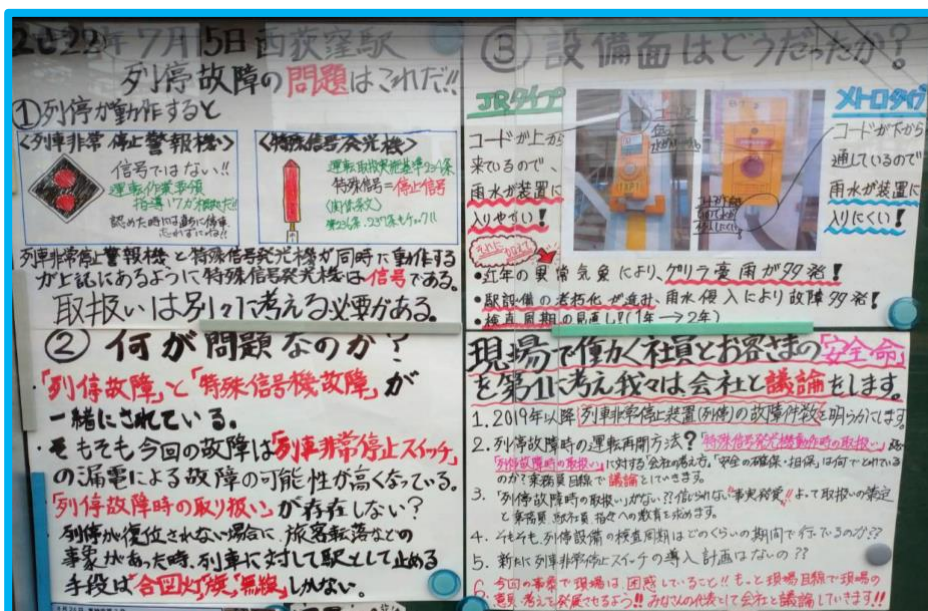 2022年7月15日西荻窪駅
列停故障の問題はこれだ!!
①列停が動作すると
<列車非常停止警報機>
信号ではない!!
運転作業要領
<特殊信号発光機>
特殊信号=停止信号
列車非常停止警報機と特殊信号発光機が同時に動作する
が上記にあるように特殊信号発光機は信号である。
取扱いは別々に考える必要がある。
②何が問題なのか?
・「列停故障」と「特殊信号機故障」が
一緒にされている。
・そもそも今回の故障は「列車非常停止スイッチ」
の漏電による故障の可能性が高くなっている。
・「列停故障時の取り扱い」が存在しない?
列停が復位されない場合に、旅客転落などの
事象があった時、列車に対して駅として止める
手段は"合図灯""旗""無線"しかない。
③設備面はどうだったか?
JRタイプ
コードが上から
来ているので、
雨水が装置に
入りやすい!
メトロタイプ
コードが下から
通しているので
雨水が装置に
入りにくい!
それに加えて
•近年の異常気象により、ゲリラ豪雨が多発!
•駅設備の老朽化が進み、雨水侵入により故障多発!
•検査周期の見直し?(1年→2年)
現場で働く社員とお客さまの「安全・命」
を第1に考え我々は会社と議論をします。
1. 2019年以降「列車非常停止装置(列停)の故障件数」を明らかにします。
2. 列停故障時の運転再開方法?「特殊信号発光機動作時の取扱い」
「列停故障時の取扱い」に対する会社の考え方。「安全の確保・担保」は何でとれている
のか?乗務員目線で議論していきます。
3. 「列停故障時の取扱い」がない??信じられない"事実発覚"!!よって取扱いの策定
と乗務員、駅社員、指令への教育を求めます。
4. そもそも、列停設備の検査周期はどのくらいの期間で行っているのか??
5. 新たに列車非常停止スイッチの導入計画はないの??
6. 今回の事象で現場は、困惑していること!!もっと現場目線で現場の
意見、考えを発展させるよう!!みなさんの代表として会社と議論していきます!!